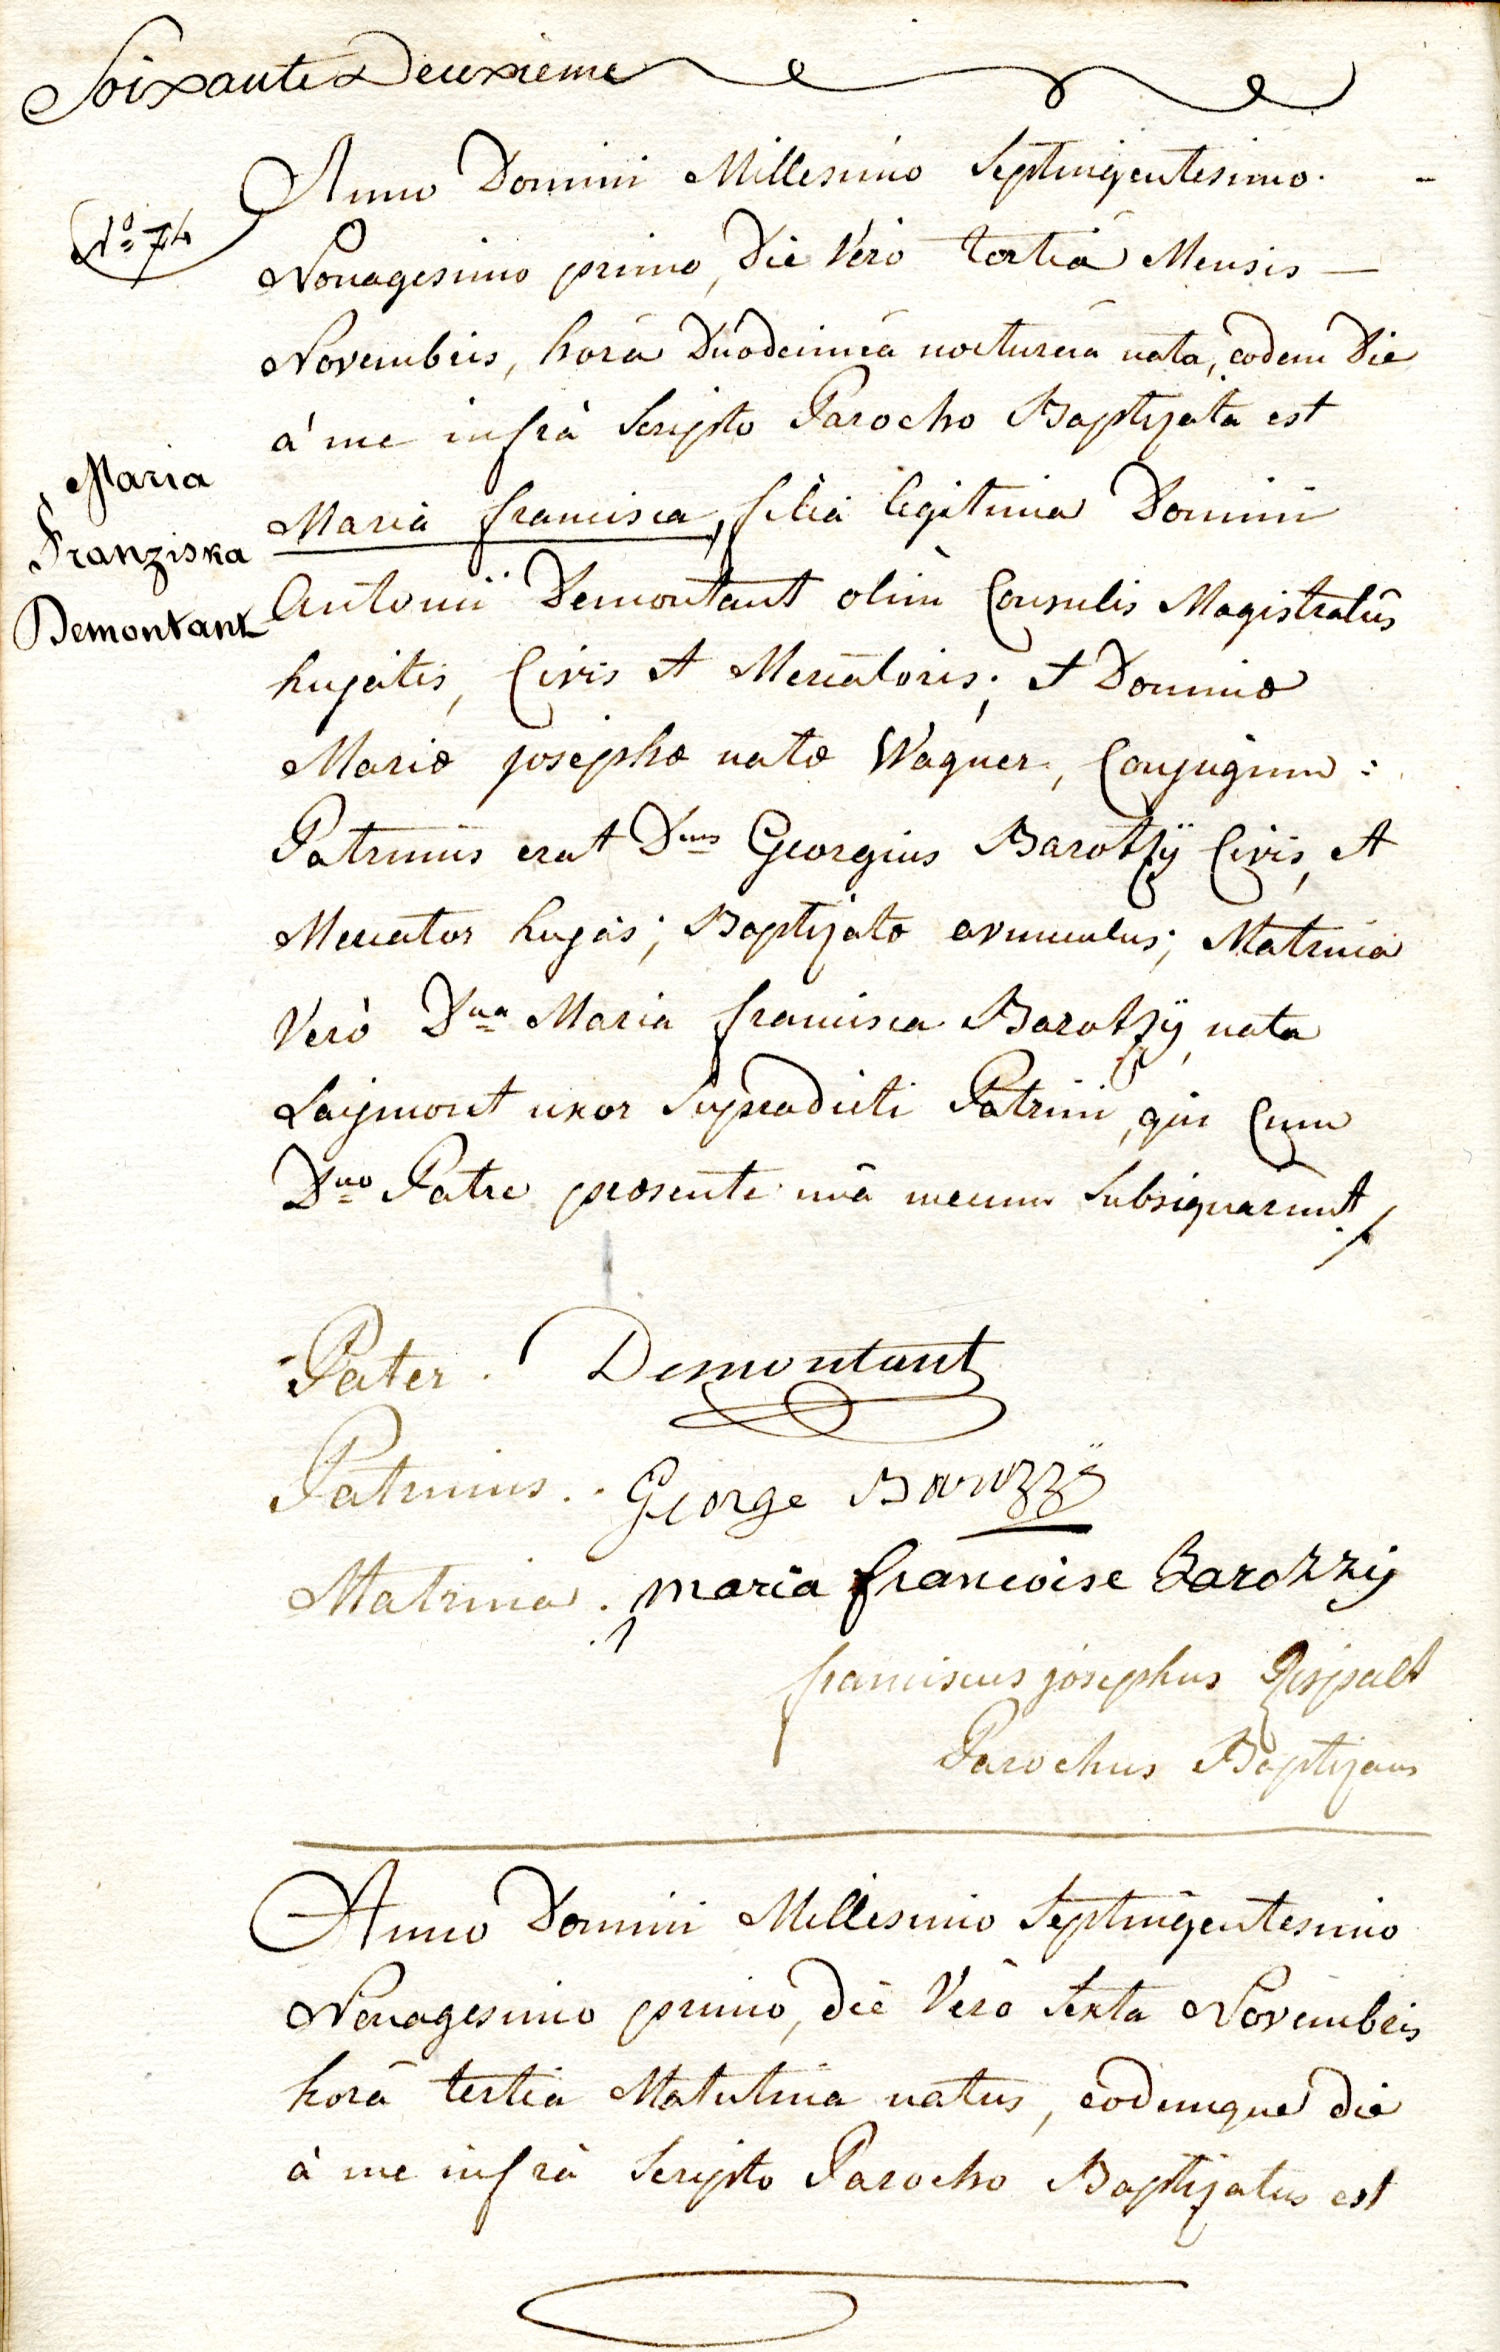 Soixante Deuxieme
Anno Domini Millesimo Septingentesimo. -
Nº 74
Nonagesimo primo, Die Vero tertiâ Mensis —
Novembris, horâ Duodecimâ nocturnâ nata, eodem Die
à me infrà Scripto Parocho Baptizata est
Maria
Franziska
Demontant
Maria francisca, filia legitima Domini
Antonii Demontant olim Consulis Magistratûs
hujatis, Civis et Mercatoris; et Dominæ
Mariæ josephæ natæ Wagner, Conjugum:
Patrinus erat Dnus Georgius Barotzÿ Civis, et
Mercator hujas; Baptizatæ avunculus; Matrina
Verò Dna Maria francisca Barotzÿ, nata
uxor Supradicti Patrini, qui Cum
Dno Patre præsente unâ mecum Subsignarunt ./.
Pater. Demontant
Patrinus. George Barozzÿ
Matrina. maria francoise Barozzij
franciscus josephus
Parochus Baptizans
Anno Domini Millesimo Septingentesimo
Nonagesimo primo, die Vero Sexta Novembris
horâ tertia Matutina natus, eodemque die
à me infrà Scripto Parocho Baptizatus est